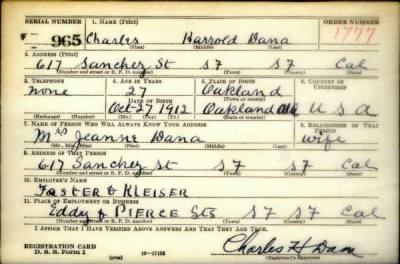 SERIAL NUMBER 1. NAME (Print) ORDER NUMBER
965 Charles Harrold Dana 1777
(First) (Middle) (Last)
2. ADDRESS (Print)
617 Sanchez St SF SF Cal
(Number and street or R. F. D. number) (Town) (County) (State)
3. TELEPHONE 4. AGE IN YEARS 5. PLACE OF BIRTH 6. COUNTRY OF CITIZENSHIP
none 27 Oakland
DATE OF BIRTH (Town or county)
Oct-27 1912 Oakland USA
(Exchange) (Number) (Mo.) (Day) (Yr.) (State or country)
7. NAME OF PERSON WHO WILL ALWAYS KNOW YOUR ADDRESS 8. RELATIONSHIP OF THAT PERSON
Mrs Jeanne Dana wife
(Mr., Mrs., Miss) (First) (Middle) (Last)
9. ADDRESS OF THAT PERSON
617 Sanchez St SF SF Cal
(Number and street or R. F. D. number) (Town) (County) (State)
10. EMPLOYER'S NAME
FOSTER & KLEISER
11. PLACE OF EMPLOYMENT OR BUSINESS
Eddy & PIERCE Sts SF SF Cal
(Number and street or R. F. D. number) (Town) (County) (State)
I AFFIRM THAT I HAVE VERIFIED ABOVE ANSWERS AND THAT THEY ARE TRUE.
REGISTRATION CARD
D. S. S. Form 1 (over) 16-17105 Charles H Dana
(Registrant's signature)